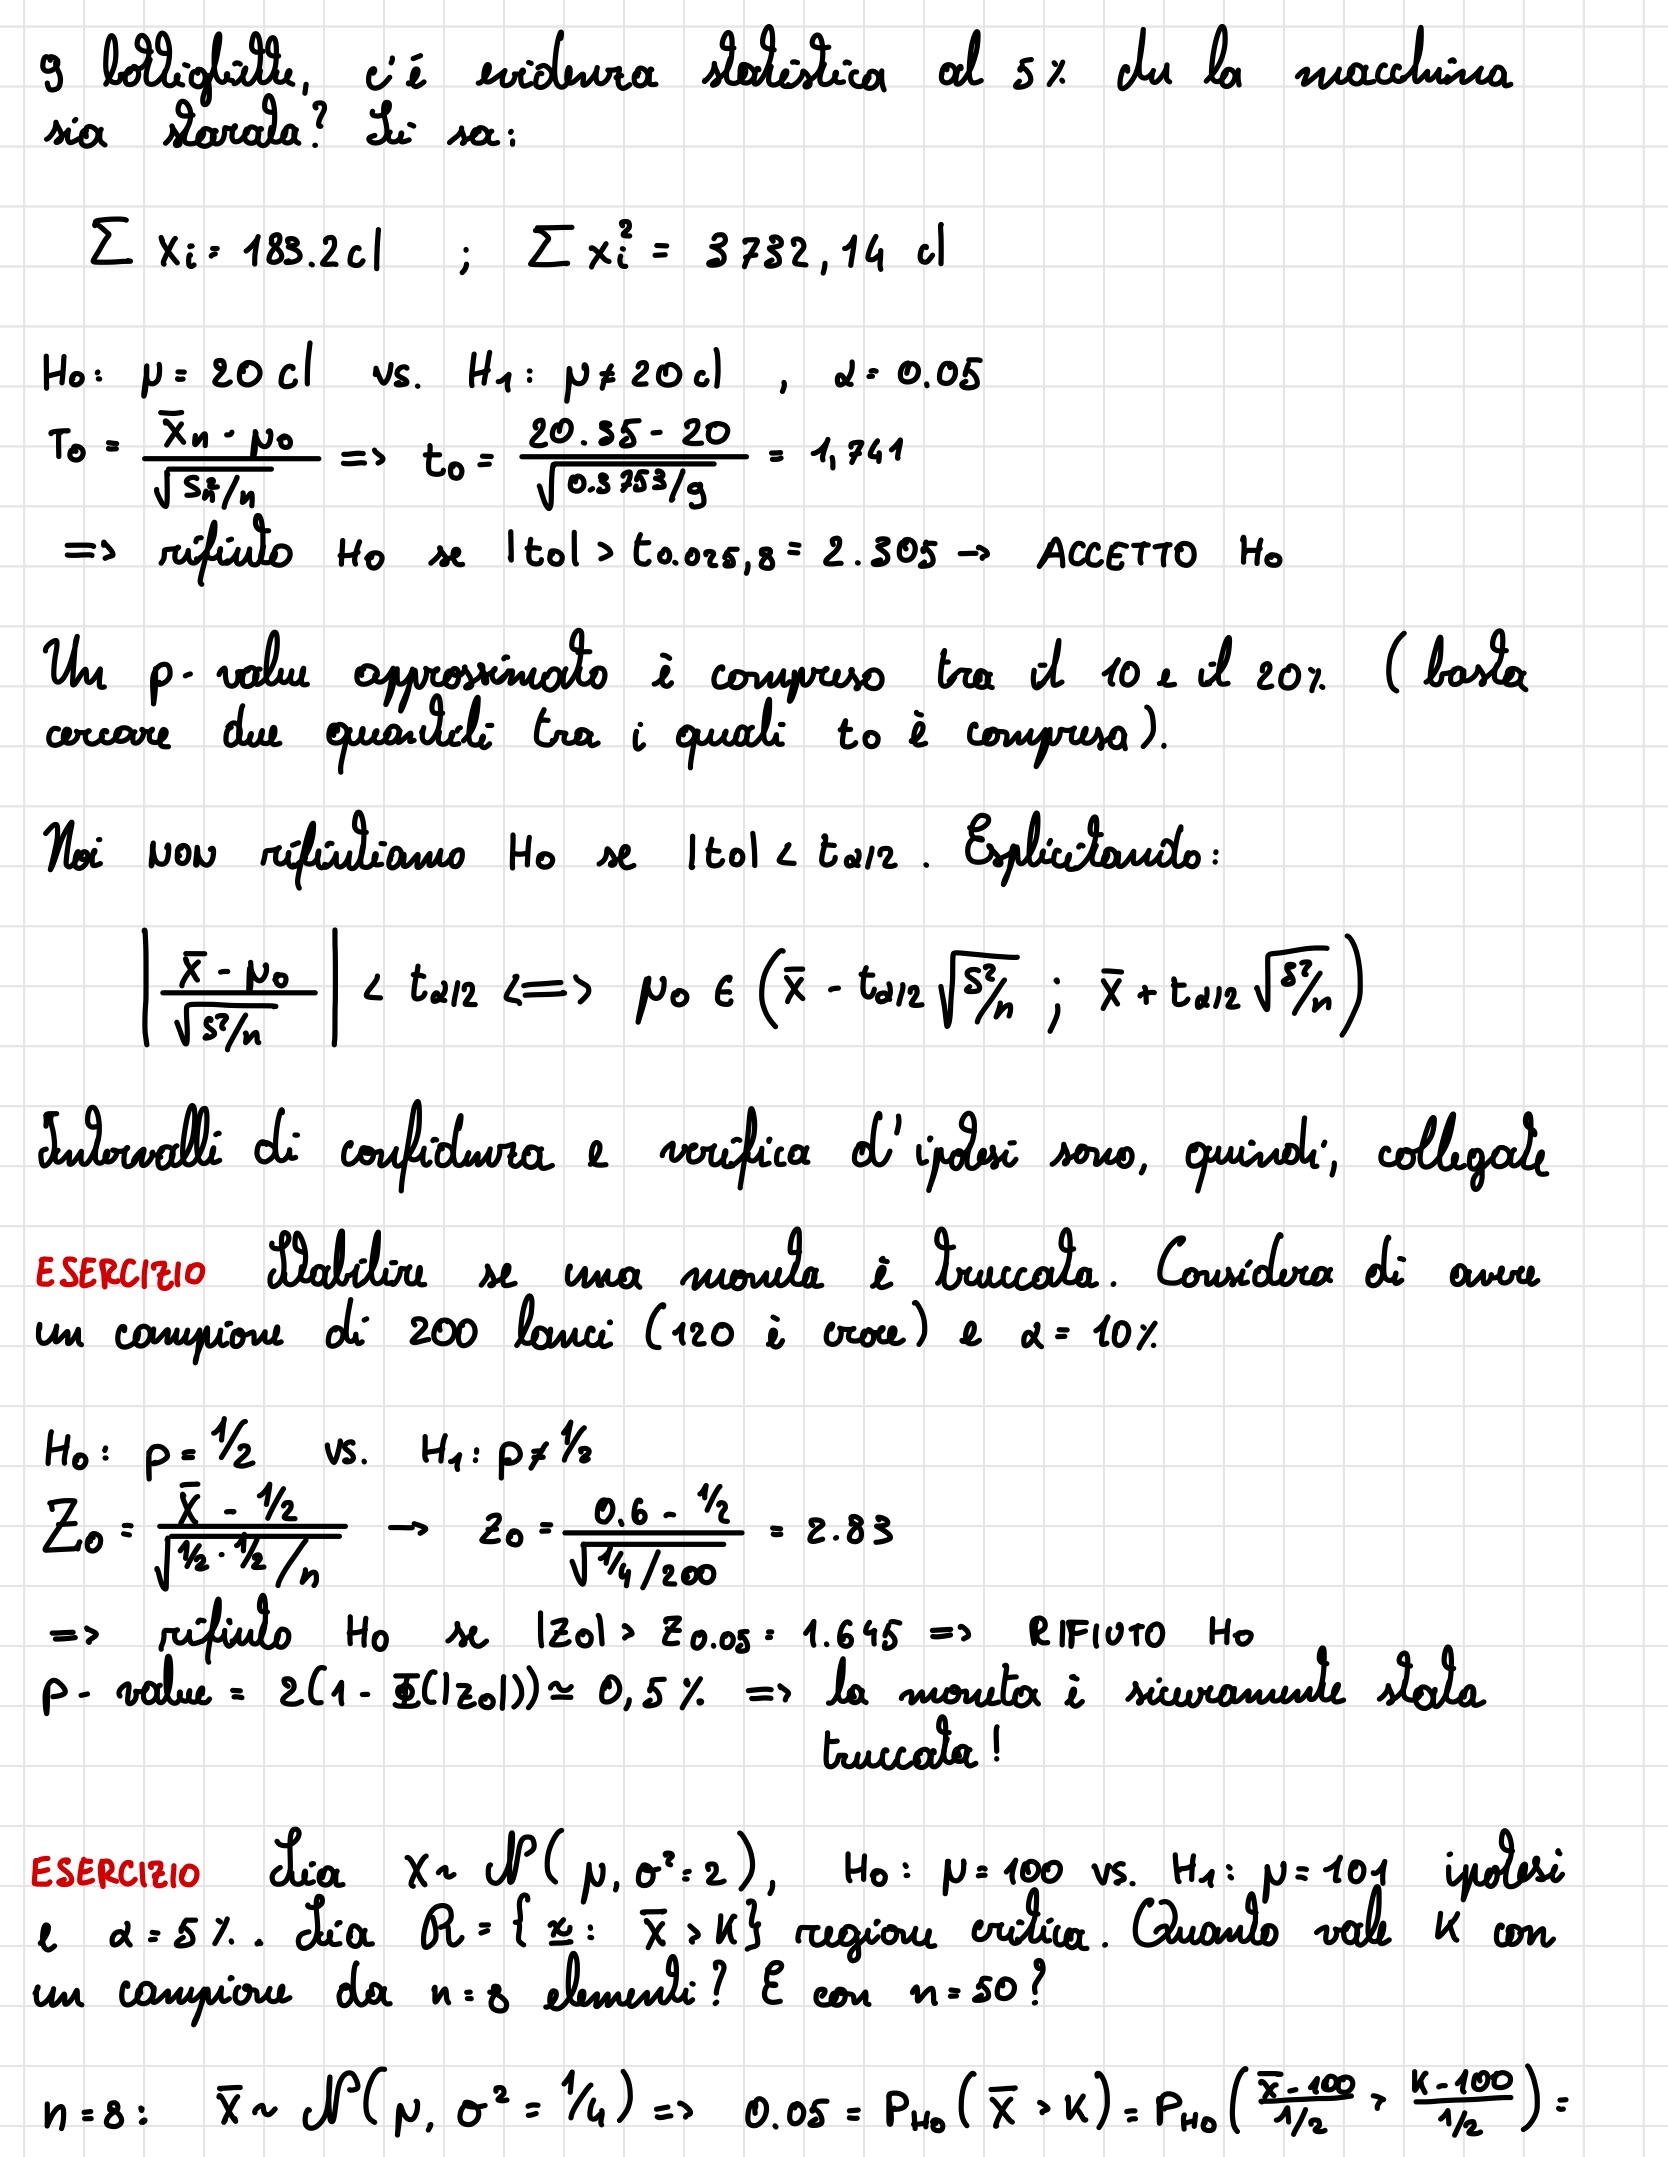 9 bottigliette, c'é evidenza statistica al 5% che la macchina
sia starata? Si sa:
∑ xi = 183.2 cl ; ∑ xi² = 3732,14 cl
H0: μ = 20 cl vs. H1: μ ≠ 20 cl , α = 0.05
T0 = (X̄n - μ0) / √(Sn²/n) => t0 = (20.35 - 20) / √(0.3753/9) = 1,741
=> rifiuto H0 se |t0| > t0.025,8 = 2.305 → ACCETTO H0
Un p-value approssimato è compreso tra il 10 e il 20% (basta
cercare due quantili tra i quali t0 è compresa).
Noi NON rifiutiamo H0 se |t0| < tα/2 . Esplicitando:
|(X̄ - μ0) / √(S²/n)| < tα/2 <=> μ0 ∈ (X̄ - tα/2 √(S²/n) ; X̄ + tα/2 √(S²/n))
Intervalli di confidenza e verifica d'ipotesi sono, quindi, collegate
ESERCIZIO Stabilire se una moneta è truccata. Considera di avere
un campione di 200 lanci (120 è croce) e α = 10%
H0: p = 1/2 vs. H1: p ≠ 1/2
Z0 = (X̄ - 1/2) / √(1/2 · 1/2 / n) → z0 = (0.6 - 1/2) / √(1/4 / 200) = 2.83
=> rifiuto H0 se |z0| > z0.05 = 1.645 => RIFIUTO H0
p-value = 2(1 - Φ(|z0|)) ≃ 0,5% => la moneta è sicuramente stata
truccata!
ESERCIZIO Sia X ~ N(μ, σ² = 2), H0: μ = 100 vs. H1: μ = 101 ipotesi
e α = 5%. Sia R = {x: X̄ > K} regione critica. Quanto vale K con
un campione da n = 8 elementi? E con n = 50?
n = 8: X̄ ~ N(μ, σ² = 1/4) => 0.05 = PH0(X̄ > K) = PH0((X̄ - 100)/(1/2) > (K - 100)/(1/2)) =